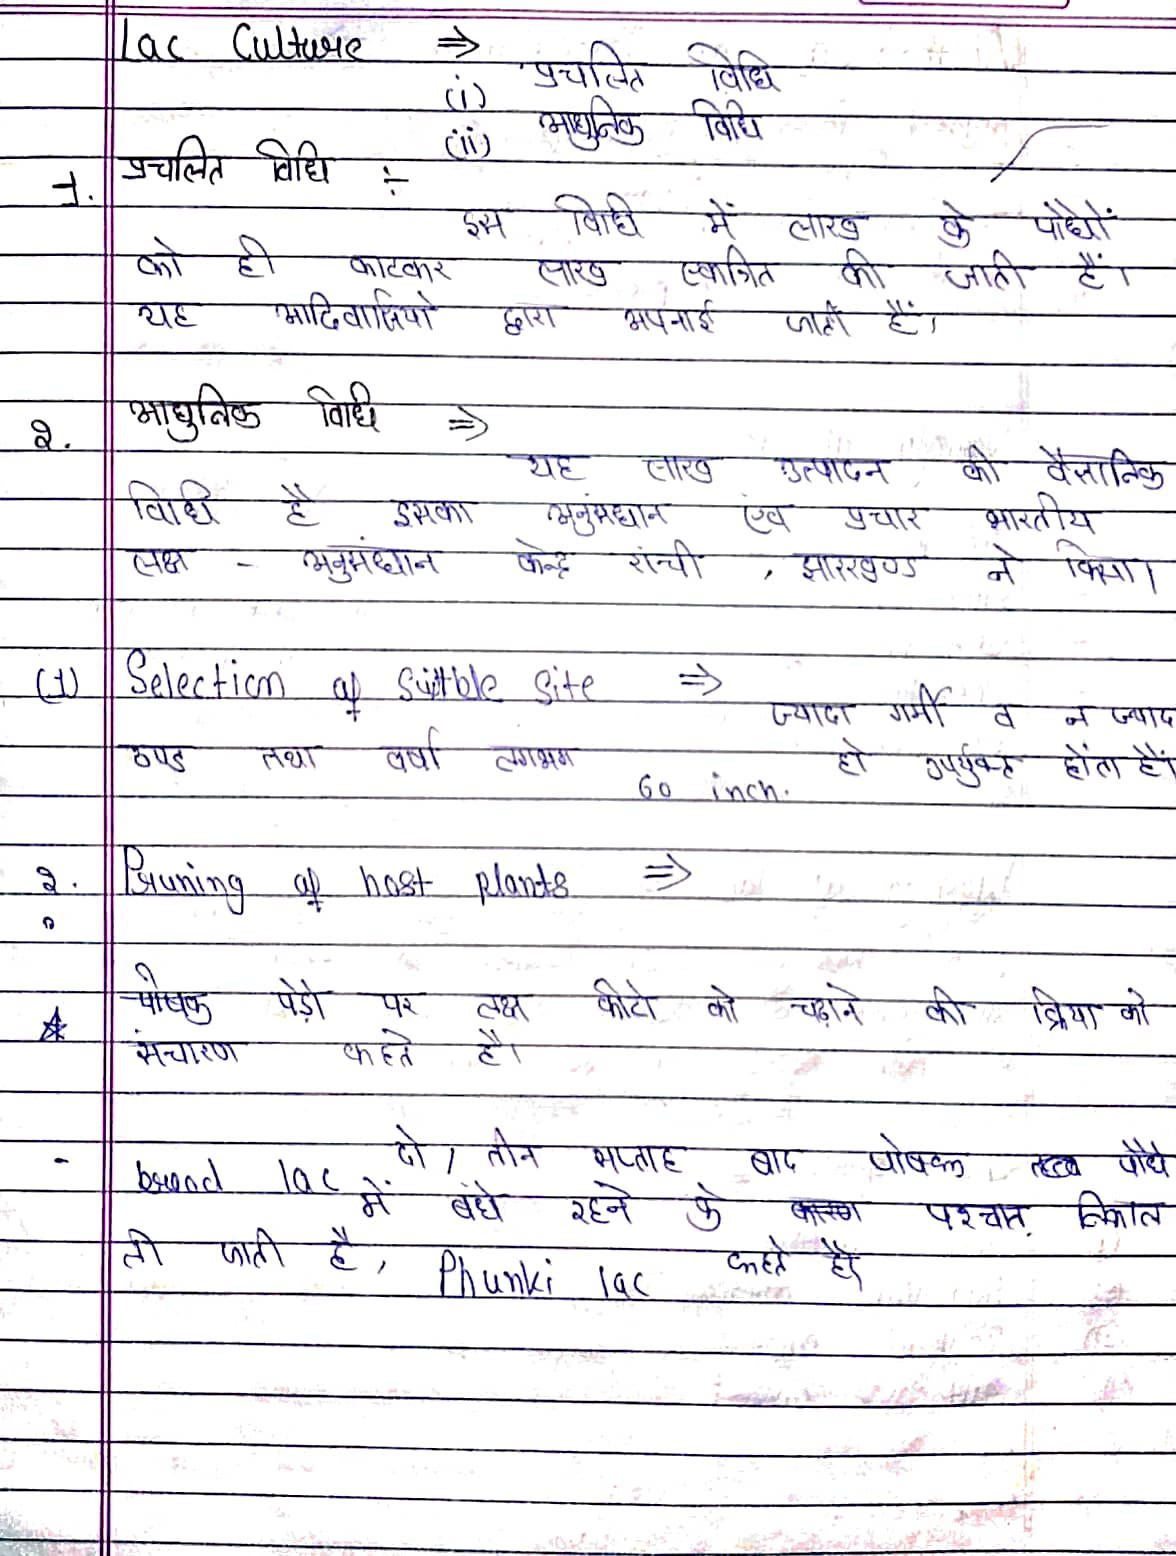 Lac Culture ⇒
(i) प्रचलित विधि
(ii) आधुनिक विधि
1. प्रचलित विधि ÷
इस विधि में लाख के पौधों
को ही काटकर लाख एकत्रित की जाती हैं।
यह आदिवासियो द्वारा अपनाई जाती हैं।
2. आधुनिक विधि ⇒
यह लाख उत्पादन की वैज्ञानिक
विधि है इसका अनुसंधान एंव प्रचार भारतीय
लक्ष - अनुसंधान केन्द्र रांची , झारखण्ड ने किया।
(1) Selection of Suitble Site ⇒
ज्यादा गर्मी व न ज्याद
ठण्ड तथा वर्षा लगभग 60 inch. हो उपर्युक्त होंता हैं।
2. Pruning of host plants ⇒
☆ पोषक पेड़ो पर लक्ष कीटो को चढ़ाने की क्रिया को
संचारण कहते है।
- दो, तीन सप्ताह बाद पोषक पौधे
brood lac में बंधे रहने के पश्चात् निकाल
ली जाती है, Phunki lac कहते हैं